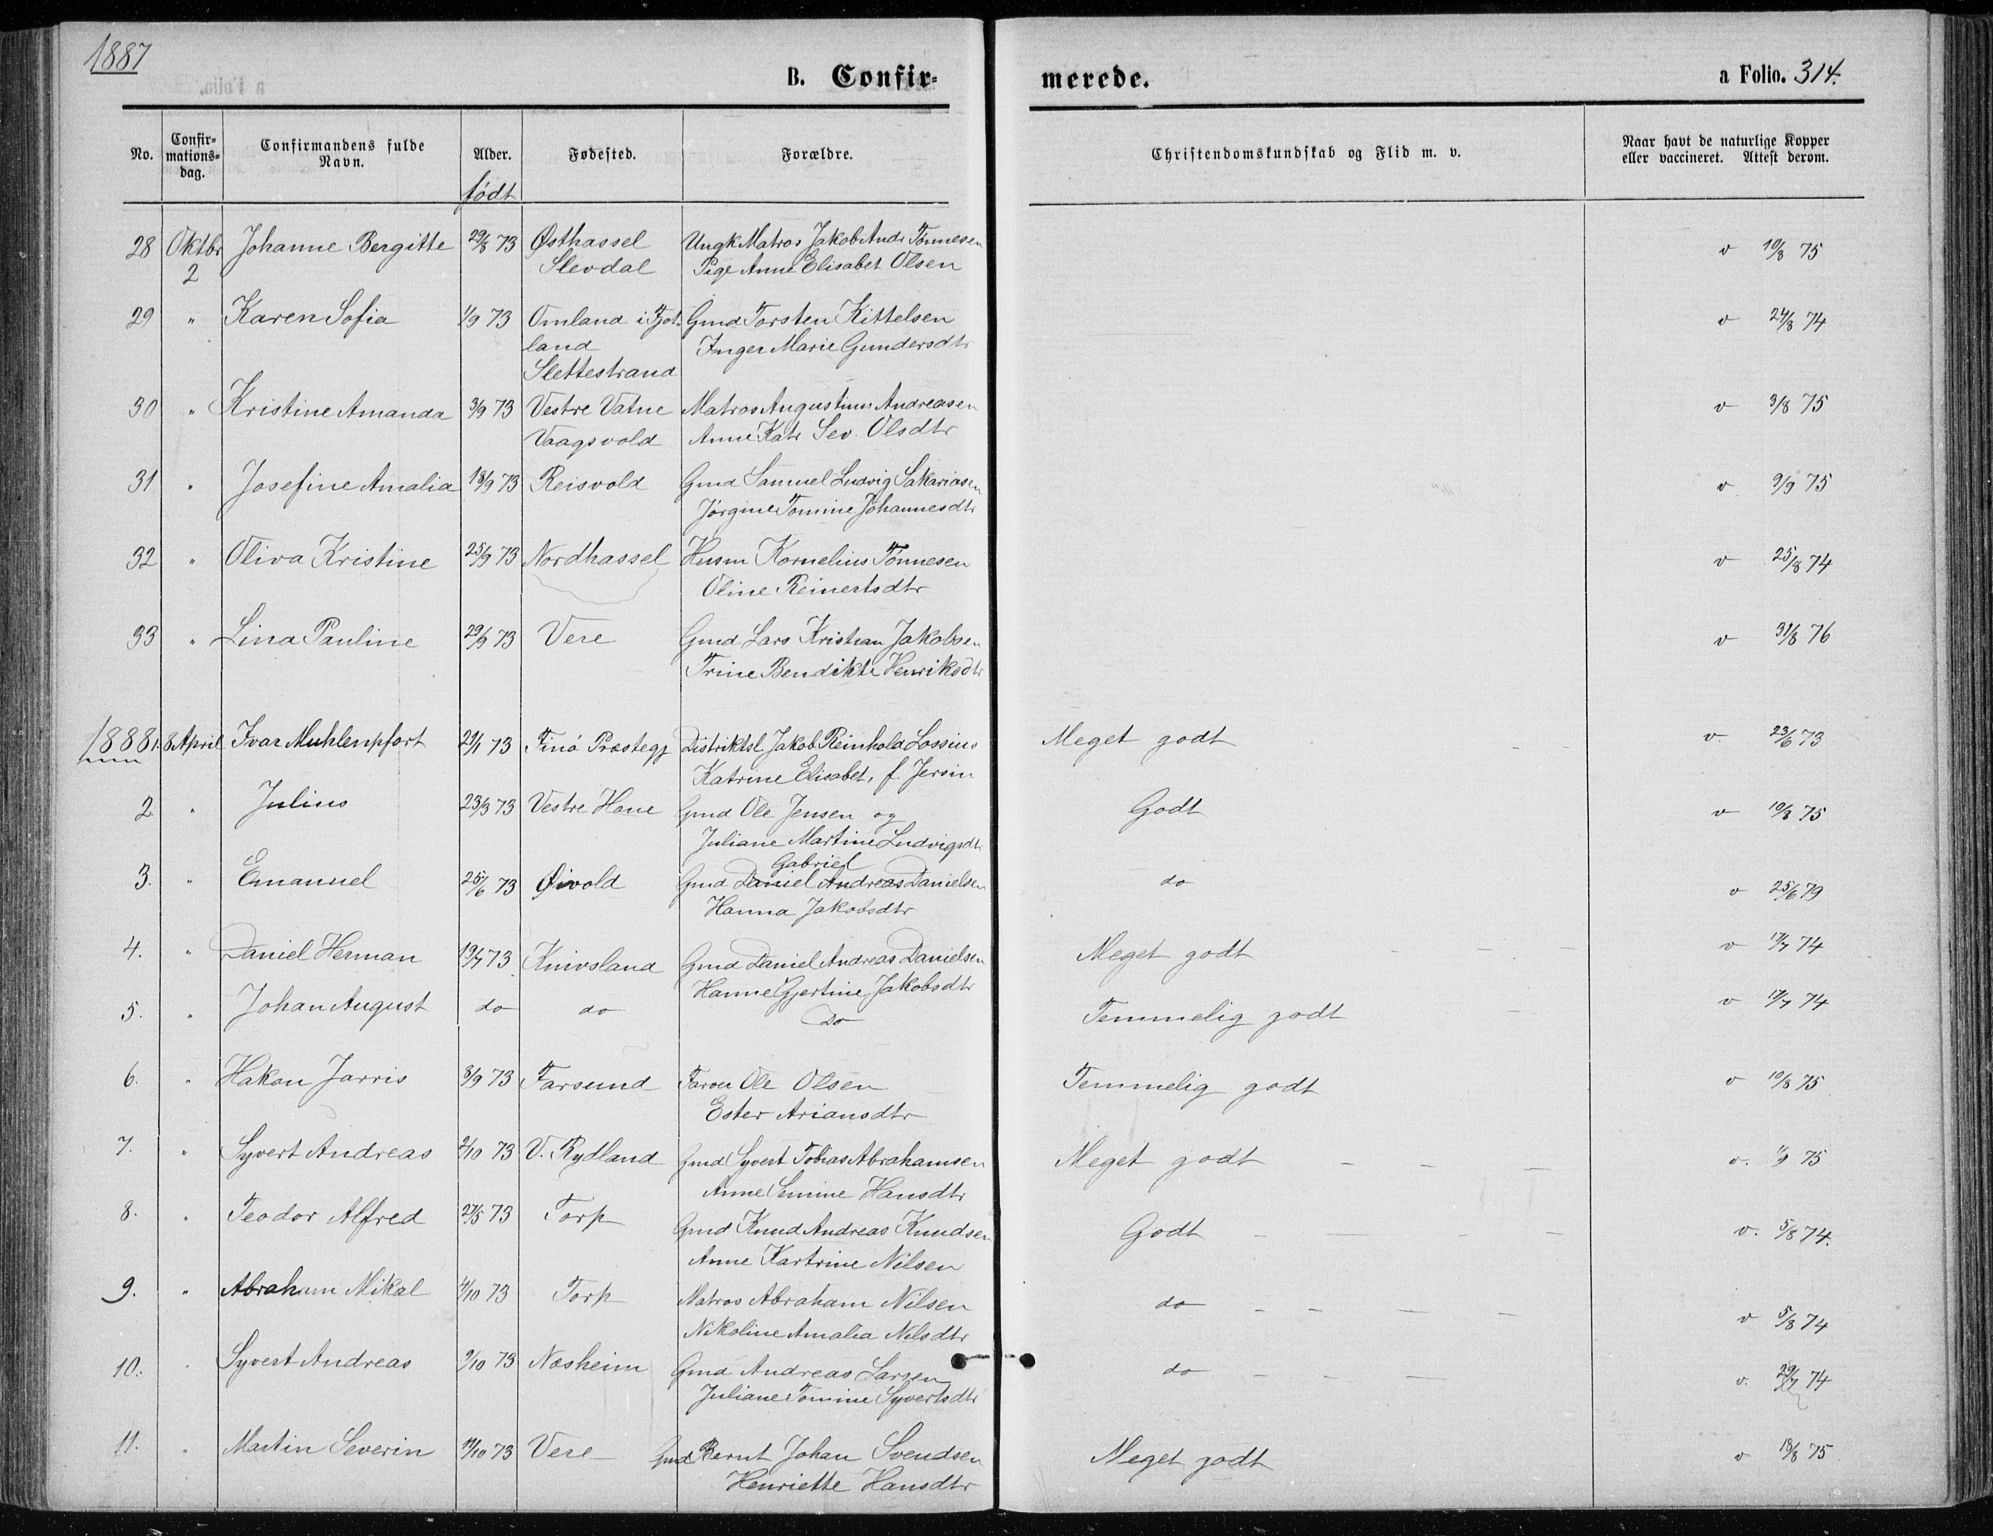 1887
B. Confir-
merede.
a Folio. 314.
No.
Confir-
mations-
dag.
Confirmandens fulde
Navn.
Alder.
født
Fødested.
Forældre.
Christendomskundskab og Flid m. v.
Naar havt de naturlige Kopper
eller vaccineret. Attest derom.
28 Oktbr Johanne Bergitte 29/8 73 Østhassel Ungk Matros Jakob Andr Tønnesen v 10/8 75
2 Slevdal Pige Anne Elisabet Olsen
29 " Karen Sofia 1/9 73 Omland i Fjot- Gmd Torsten Kittelsen v 24/8 74
land Inger Marie Gundersdtr
Slettestrand
30 " Kristine Amanda 3/9 73 Vestre Vatne Matros Augustinus Andreasen v 3/8 75
Vaagsvold Anne Katr Sev. Olsdtr
31 " Josefine Amalia 18/9 73 Reisvold Gmd Samuel Ludvig Sakariasen v 9/9 75
Jørgine Tomine Johannesdtr
32 " Oliva Kristine 25/9 73 Nordhassel Husm Kornelius Tønnesen v 25/8 74
Oline Reinertsdtr
33 " Lina Pauline 29/9 73 Vere Gmd Lars Kristian Jakobsen v 31/8 76
Trine Bendikte Henriksdtr
1888 1. 8 April Ivar Muhlenpfort 29/1 73 Finø Præstegj Distriktsl Jakob Reinhold Lossius Meget godt v. 23/6 73
Katrine Elisabet, f. Jersin
2 " Julius 23/3 73 Vestre Hane Gmd Ole Jensen og Godt v 10/8 75
Juliane Martine Ludvigsdtr
Gabriel
3. " Emanuel 25/6 73 Øivold Gmd Daniel Andreas Danielsen do v 25/6 79
Hanna Jakobsdtr
4. " Daniel Herman 19/7 73 Knivsland Gmd Daniel Andreas Danielsen Meget godt v 17/7 74
Hanne Gjertine Jakobsdtr
5. " Johan August do do Do Temmelig godt v 17/7 74
6. " Hakon Jarris 8/9 73 Farsund Farver Ole Olsen Temmelig godt v 10/8 75
Ester Ariansdtr
7. " Syvert Andreas 2/10 73 V. Rydland Gmd Syvert Tobias Abrahamsen Meget godt v. 1/9 75
Anne Semine Hansdtr
8. " Teodor Alfred 27/5 73 Torp Gmd Knud Andreas Knudsen Godt v. 5/8 74.
Anne Kartrine Nilsen
9. " Abraham Mikal 4/10 73 Torp Matros Abraham Nilsen do v 5/8 74
Nikoline Amalia Nilsdtr
10. " Syvert Andreas 9/10 73 Næsheim Gmd Andreas Larsen do v. 29/7 74
Juliane Tomine Syvertsdtr
11. " Martin Severin 11/10 73 Vere Gmd Bernt Johan Svendsen Meget godt v 18/8 75
Henriette Hansdtr